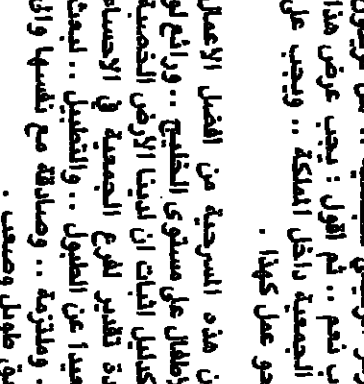 نعم .. ثم اقول : يجب عرض هذا
الجمعية داخل المملكة .. ويجب على
عمل كهذا .
هذه المسرحية من افضل الاعمال
على مستوى الخليج .. ورائع
كدليل اثبات ان لدينا الارض الخصبة
تقدير لفرع الجمعية في الاحساء
عن الطبول .. والتطبيل ..
وملتزمة .. وصادقة مع نفسها
طويل وصعب .